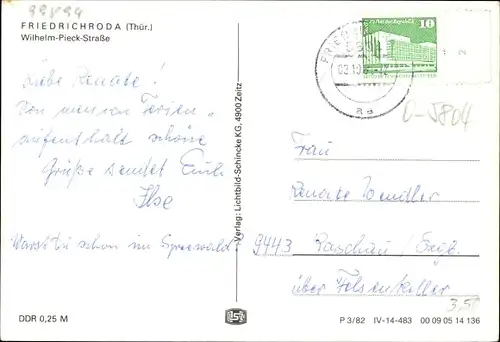 99894
FRIEDRICHRODA (Thür.)
Wilhelm-Pieck-Straße
Liebe Renate!
Von meinem Ferien-
aufenthalt schöne
Grüße sendet Euch
Ilse
Warst Du schon im Spreewald?
Verlag: Lichtbild-Schincke KG, 4900 Zeitz
10
O-5804
Frau
Renate Wendler
9443 Raschau/Erzgb.
über Felsenkeller
3,50
DDR 0,25 M
P 3/82 IV-14-483 00 09 05 14 136